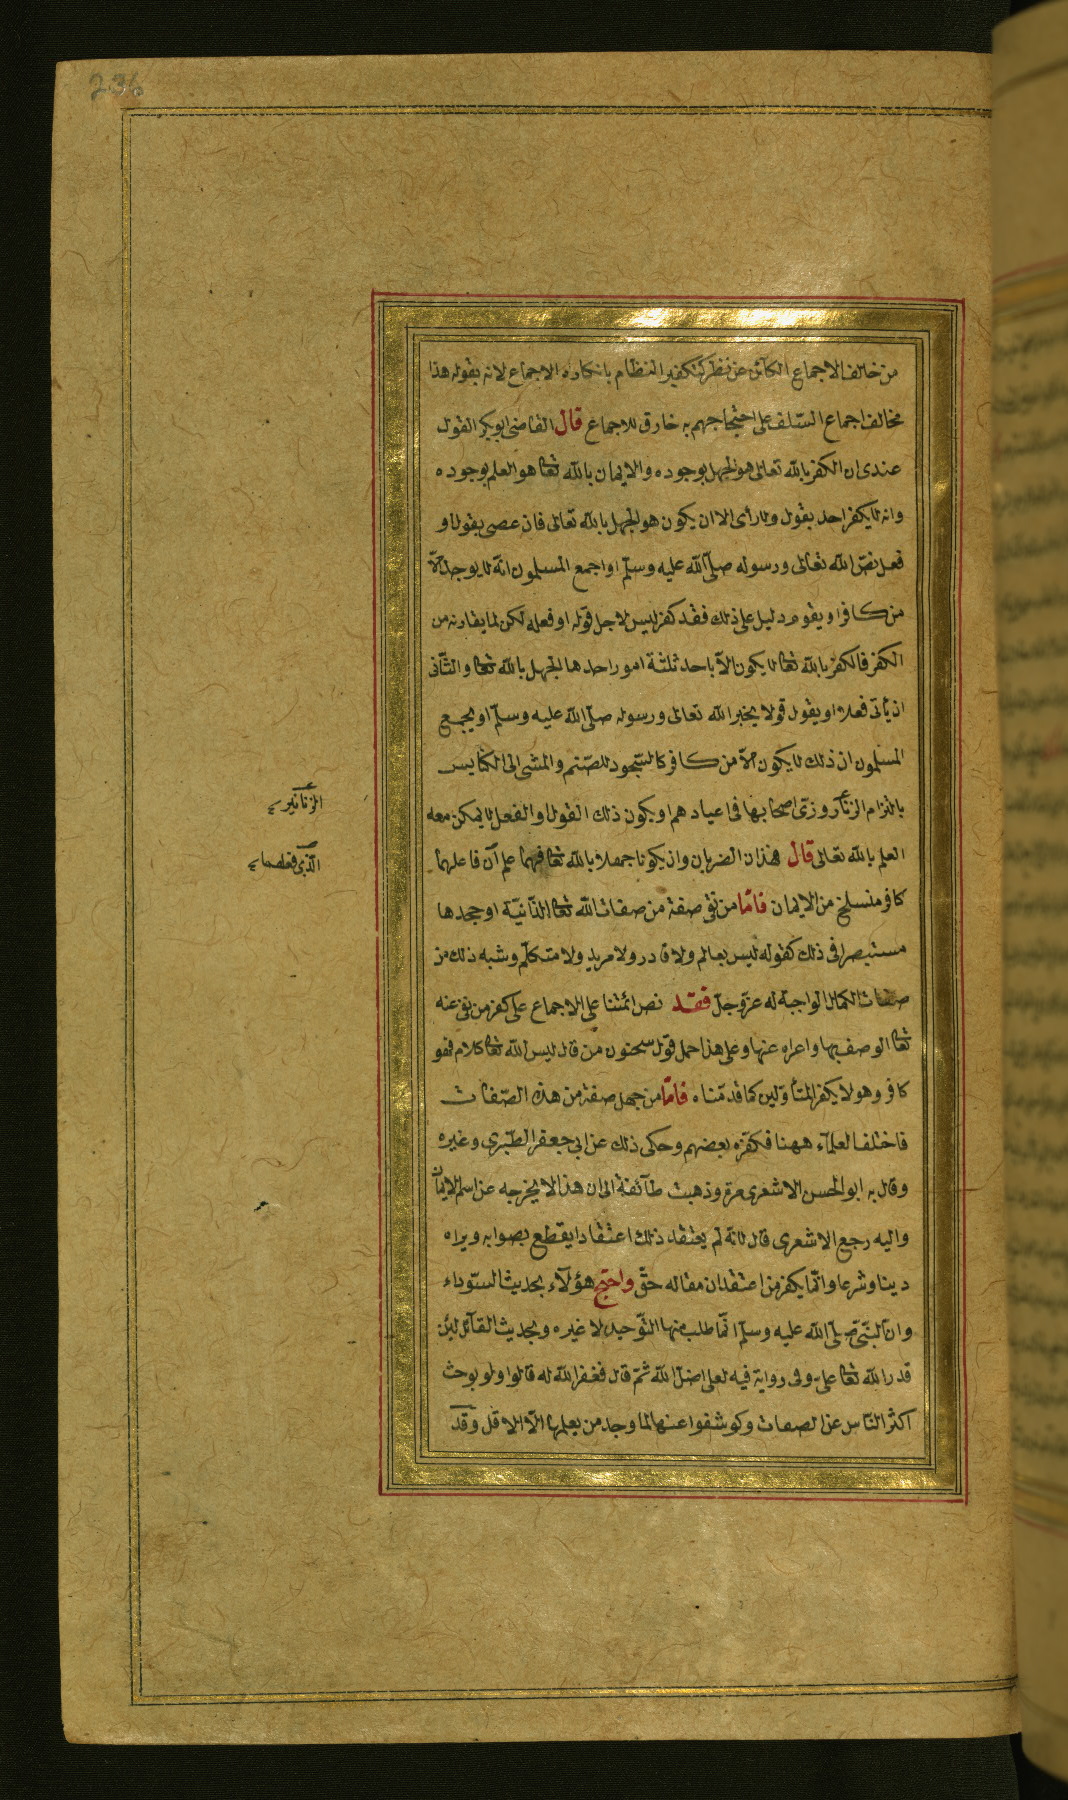 236
من خالف الاجماع الكائن عن نظر كتكفير النظام بانكاره الاجماع لانه بقوله هذا
مخالف اجماع السّلف على احتجاجهم به خارق للاجماع قال القاضى ابو بكر القول
عندى ان الكفر بالله تعالى هو الجهل بوجوده والايمان بالله تعا هو العلم بوجوده
وانه لا يكفر احد بقول ولا رأى الا ان يكون هو الجهل بالله تعالى فان عصى بقول او
فعل نصّ الله تعالى ورسوله صلّى الله عليه وسلّم او اجمع المسلمون انّه لا يوجد الّا
من كافر او يقوم دليل على ذلك فقد كفر ليس لاجل قوله او فعله لكن لما يقارنه من
الكفر فالكفر بالله تعا لا يكون الّا باحد ثلثة امور احدها الجهل بالله تعا والثّانى
ان يأتى فعلا او يقول قولا يخبر الله تعالى ورسوله صلّى الله عليه وسلّم او يجمع
المسلمون ان ذلك لا يكون الّا من كافر كالسّجود للصّنم والمشى الى الكنايس
بالتزام الزنّار وزىّ اصحابها فى اعيادهم او يكون ذلك القول او الفعل لا يمكن معه
العلم بالله تعالى قال فهذان الضربان وان يكونا جهلا بالله تعا فهما علم ان فاعلهما
كافر منسلخ من الايمان فامّا من نفى صفة من صفات الله تعا الذّاتيّة او جحدها
مستبصرا فى ذلك كقوله ليس بعالم ولا قادر ولا مريد ولا متكلّم وشبه ذلك من
صفات الكمال الواجبة له عزّ وجلّ فقد نص ائمّتنا على الاجماع على كفر من نفى عنه
تعا الوصف بها واعراه عنها وعلى هذا حمل قول سحنون من قال ليس لله تعا كلام فهو
كافر وهو لا يكفر المتأوّلين كما قدمّناه فامّا من جهل صفة من هذه الصّفات
فاختلف العلمآء ههنا فكفّره بعضهم وحكى ذلك عن ابى جعفر الطّبرى وغيره
وقال به ابو الحسن الاشعرى مرة وذهبت طآئفة الى ان هذا لا يخرجه عن اسم الايمان
واليه رجع الاشعرى قال لانّه لم يعتقد ذلك اعتقادا يقطع بصوابه ويراه
دينا وشرعا وانّما يكفر من اعتقد ان مقاله حقّ واحتجّ هؤلآء بحديث السّوداء
وانّ النّبىّ صلّى الله عليه وسلّم انّما طلب منها التّوحيد لا غيره وبحديث القآئل لئن
قدر الله تعا علىّ وفى رواية فيه لعلى اضلّ الله ثمّ قال فغفر الله له قالوا ولو بوحث
اكثر النّاس عن الصفات وكوشفوا عنها لما وجد من يعلمها الّا الاقل وقد
الزنانير
الذى فعلهما